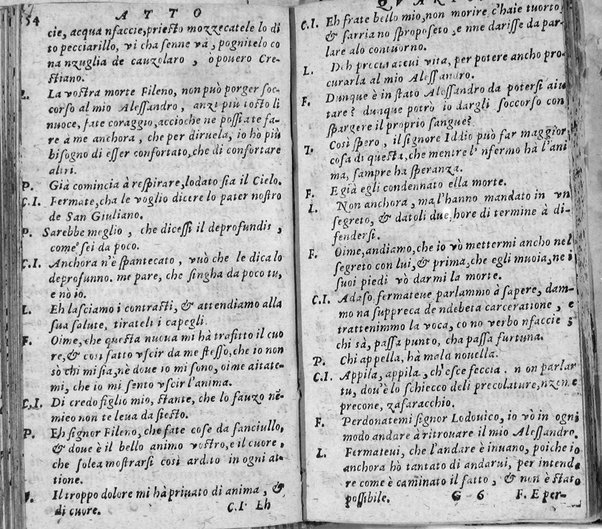 54 ATTO
cie, acqua nfaccie, priesto mozzecatele lo di
to pecciarillo, vi cha senne va, pognitelo co
na nzuglia de cauzolaro, o pouero Cre-
stiano.
L. La vostra morte Fileno, non può porger soc-
corso al mio Alessandro, anzi più tosto li
nuoce, fate coraggio, accioche ne possiate fa-
re à me anchora, che per diruela, io hò più
bisogno di esser confortato, che di confortare
altri.
P. Già comincia à respirare, lodato sia il Cielo.
C.I. Fermate, cha le voglio dicere lo pater nostro
de San Giuliano.
P. Sarebbe meglio, che dicessi il deprofundis,
come sei da poco.
C.I. Anchora n'è spantecato, vuò che le dica lo
deprofunno. me pare, che singha da poco tu,
e nò io.
L. Eh lasciamo i contrasti, & attendiamo alla
sua salute, tirateli i capegli.
F. Oime, che questa nuoua mi hà trafitto il cuo
re, & così fatto vscir da me stesso, che io non
sò chi mi sia, nè doue io mi sono, oime aitate-
mi, che io mi sento vscir l'anima.
C.I. Di credo figlio mio, stante, che lo fauzo ne-
mico non te leua da siesto.
P. Eh signor Fileno, che fate cose da fanciullo,
& doue è il bello animo vostro, e il cuore,
che solea mostrarsi così ardito in ogni at-
tione.
F. Il troppo dolore mi hà priuato di anima, &
di cuore.
C.I. Eh
QVARTO
C.I. Eh frate bello mio, non morire, c'haie tuorto,
& farria no sproposeto, e nne darisse da par-
lare alo contuorno.
L. Deh procurateui vita, per potere ancho pro-
curarla al mio Alessandro.
F. Dunque è in stato Alessandro da potersi aiu
tare? dunque potrò io dargli soccorso con
spargere il proprio sangue?
L. Così spero, il signore Iddio può far maggior
cosa di questa, che mentre l'nfermo hà l'ani
ma, sempre ha speranza.
F. E già egli condennato ella morte.
L. Non anchora, ma l'hanno mandato in vn
segreto, & datoli due, hore di termine à di-
fendersi.
F. Oime, andiamo, che io vò mettermi ancho nel
segreto con lui, & prima, che egli muoia, ne i
suoi piedi vò darmi la morte.
C.I. Adaso. fermateue parlammo à sapere, dam-
mo na suppreca de ndebeia carceratione, e
trattenimmo la voca, co no verbo nfaccie;
chi sà, passa punto, cha passa furtuna.
P. Chi appella, hà mala nouella.
C.I. Appila, appila, ch'esce feccia. non parlar
tu, dou'è lo schiecco deli precolature, nzene
precone, zafaracchio.
F. Perdonatemi signor Lodouico, io vò in ogni
modo andare à ritrouare il mio Alessandro.
L. Fermateui, che l'andare è inuano, poiche io
anchora hò tantato di andarui, per intende
re come è caminato il fatto, & non è stato
possibile.
G 6 F. E per-